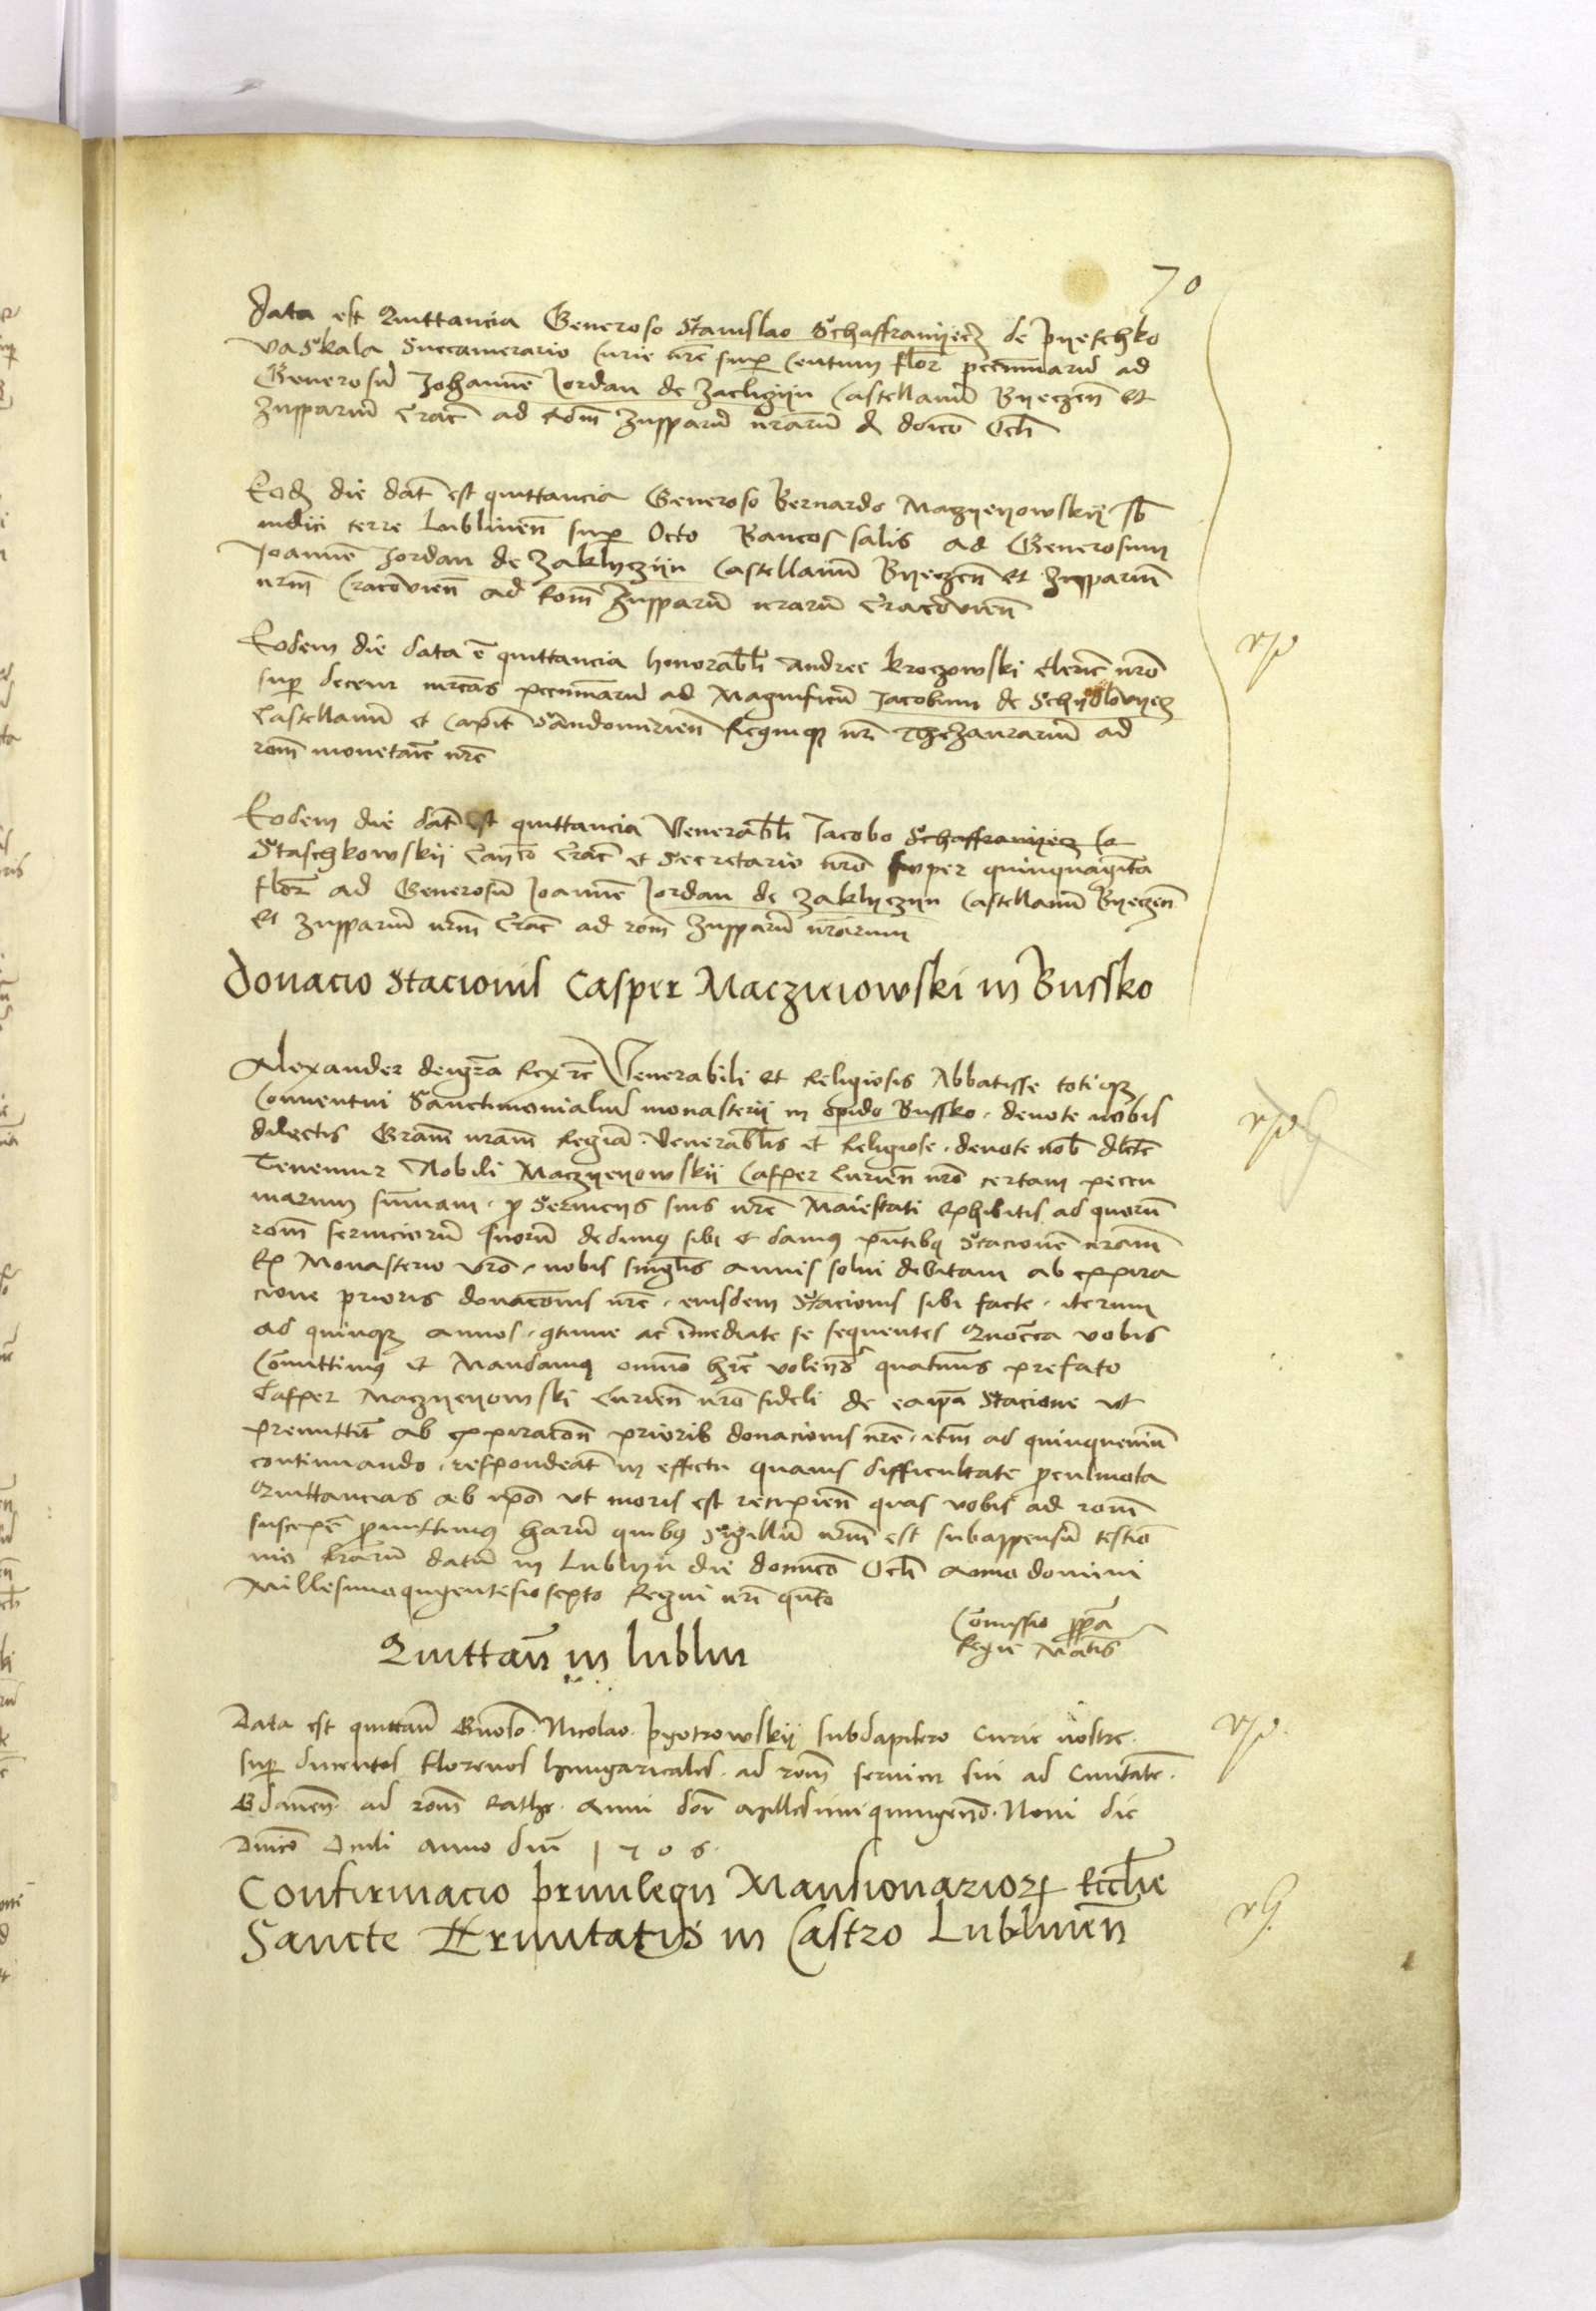 70
Data est Quittancia Generoso Stanislao Schaffranyecz de pyeschko
vaskala Succamerario Curie nrē sup Centum flor pecuniarū ad
Generosū Johannē Jordan de Zacligzijn Castellanū Byeczeñ et
Zupparium Crac̄ ad rōm Zupparū nrarū d doīco Ocłi
Eodē die dat̄ est quittancia Generoso Bernardo Maczyeyowskij sb
iudici terre Lublineñ sup Octo Bancos salis ad Generosum
Joannē Jordan de Zaklyczijn Castellanū Byeczeñ et Zupparium
nrm̄ Cracovieñ ad rōm Zupparū nrarū Cracovieñ
Eodem die data ē quittancia honorabli Andree kroczowski cleric̄ nrō
sup decem mrcas pecuniarū ad Magnificū Jacobum de Schydlovyecz
Castellanū et Capit̄ Sandomirieñ Regniq̨ nrī Thezaurariū ad
rōm monetarie nrē
Eodem die dat̄ est quittancia Venerabli Jacobo Schaffranyecz
Staschkowskij Canco Crac̄ et Secretario nrō super quinquaginta
flor ad Generosū Joannē Jordan de Zaklyczyn Castellanū Byeczeñ
Et Zupparium nrm̄ Crac̄ ad rōm Zupparū nrarum
Donacio Stacionis Casper Maczieiowski in Bussko
Alexander dei grā Rex rc̄ Venerabili et Religiosis Abbatisse totiq̨
Conventui Sanctimonialiū monasterij in opido Bussko. devote nobis
dilectis Grām nram̄ Regiā. Venerablis et Religiose. devote nob̄ dlctē
Tenemur Nobili Maczyeyowskij Casper Curieñ nrō certam pecu
niarum sum̄am. p Serviciis suis nrē Maiestati Exhibitis ad quorū
rōm serviciorū suorū dedimus sibi et damus pntibq Stacionē nram̄
Ex Monasterio vrō. nobis singlis annis solvi debitam ab expira
cione prioris donacōnis nrē. eiusdem Stacionis sibi facte. iterum
ad quinq̨ annos. gtinue ac im̄ediate se sequentes Quocca vobis
Com̄ittimus et Mandamus omnio hrē volentes quatinus prefato
Casper Maczyeyowski Curieñ nrō fideli de eaip̄a Stacione ut
Premittit̄ ab expiracōn prioris donacionis nrē. itm̄ ad quinqueniū
continuando. respondeat̄ in effectu quavis difficultate proculmota
Quittancias ab ipō ut moris est recipieñ quas vobis ad rōm
suscipē promittimus harū quibus Sigillū nrm̄ est subappensū testiō
nio lrarū datū in Lublyn die domico Ocłi anno domini
Millesimoquigentesiosexto Regni nrī qnto
Com̄issio ppa
Regie Mātis
Quittañ in lublin
Data est quittañ Gnoso. Nicolao. pyotrowskij subdapifero Curie nostre.
sup ducentos florenos hungaricales. ad rōm servicii sui ad Civitatē.
Gdaneñ. ad rōm Raths. Anni dni Millesimiquingeno. Noni die
Dnico Oculi anno dnī 1506.
Confirmacio privilegii Mansionariorum Ecclīe
Sancte Trinitatis in Castro Lublineñ